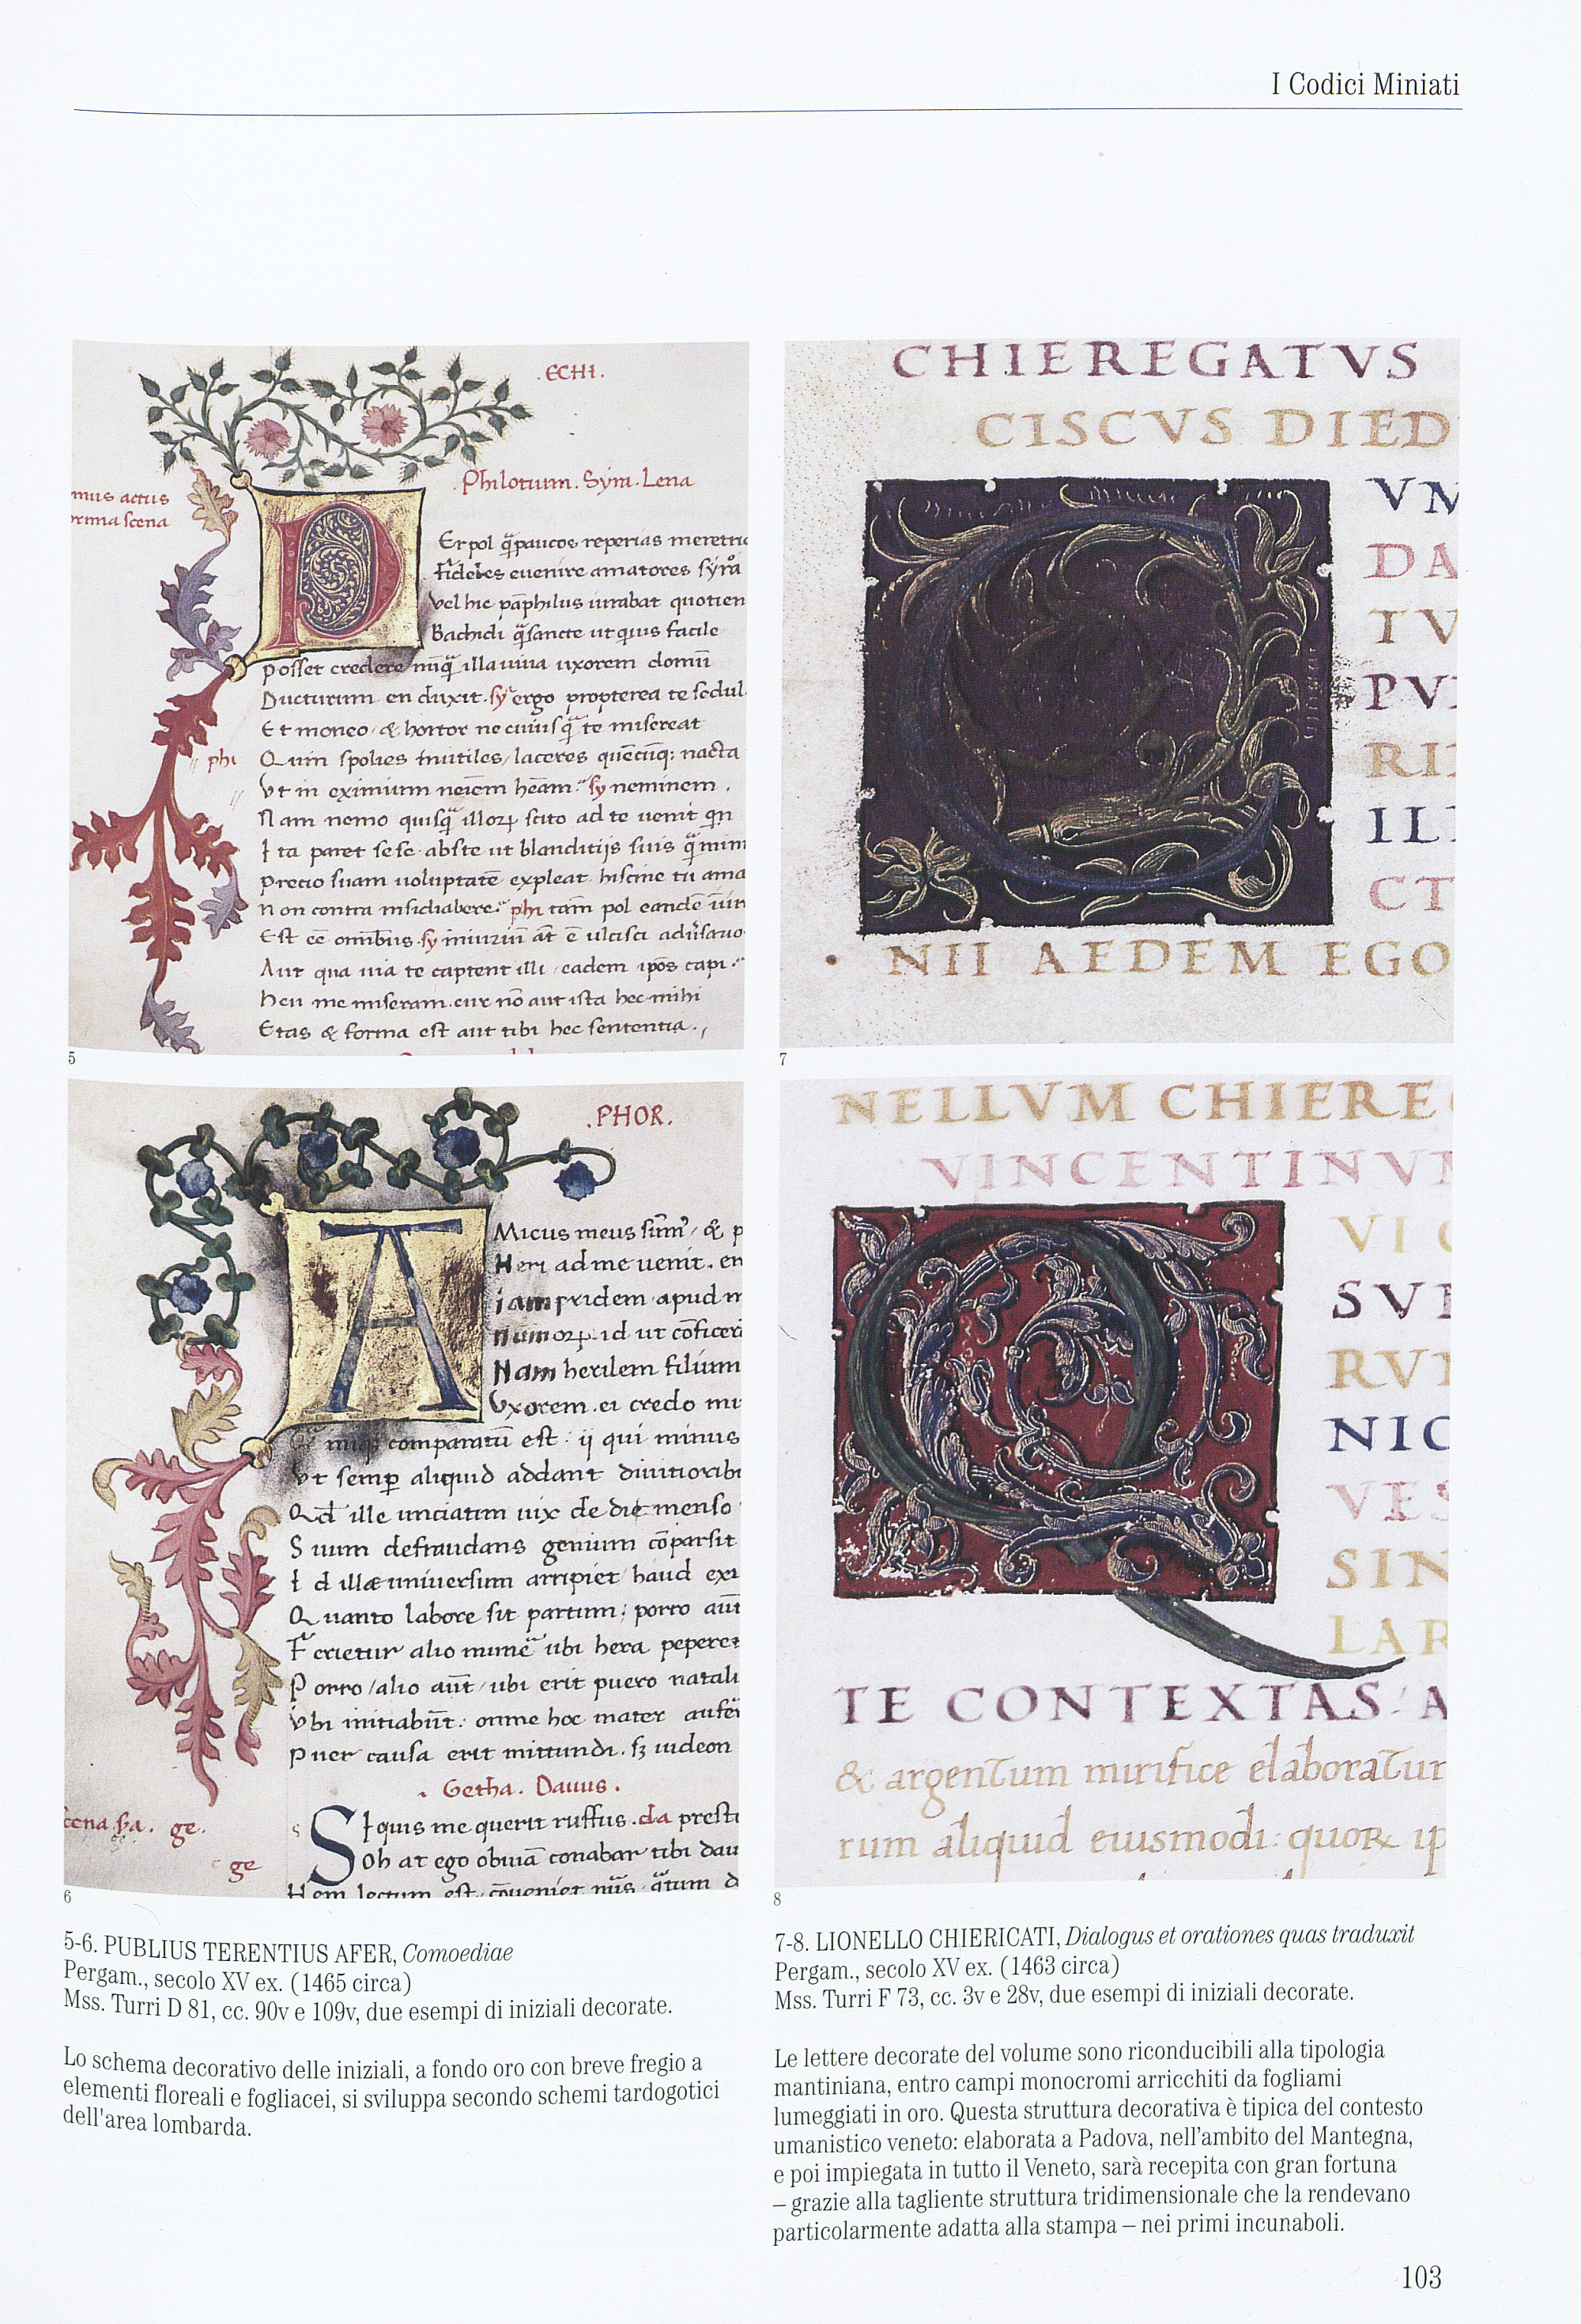 I Codici Miniati
.ECHI.
Philotium. Syra. Lena
mus actus
prima scena
fideles euenire amatores syra
posset credere
Ducturum en duxit. sy ergo propterea te sedul
Et moneo & hortor ne cuiusq te misereat
phi
Quin spolies mutiles laceres
nacta
sy neminem.
Nam nemo
scito ad te uenit
Ita paret sese abste ut blanditijs suis
precio suam
expleat. hiscine tu ama
Non contra insidiabere. phi
pol
Aut qua uia te captent illi eadem
capi
heu me miseram. cur
aut ista hec mihi
Etas & forma est aut tibi hec sententia.
5
CHIEREGATVS
CISCVS DIED
VN
DA
TV
PV
RI
ILI
CT
NII AEDEM EGO
7
.PHOR.
A
Micus meus
Heri ad me uenit. en
iampridem apud
id ut
Nam herilem filium
Vxorem. ei credo
comparatū est ij qui minus
Vt semp aliquid addant
ille unciatim uix de
menso
Suum defraudans genium
Id illæ uniuersum arripiet haud
Quanto labore sit partum: porro
alio
ubi hera
Porro alio
ubi erit puero natali
Vbi
omne hoc mater
Puer causa erit mittundi.
uideon
. Getha. Dauus.
SI quis me queret ruffus. da presto
Oh at ego obuiā conabar tibi dau
cena
ge.
ge
6
NELLVM CHIERE
VINCENTINVM
VI
SVI
RVI
NIC
VES
SIN
LAR
TE CONTEXTAS. A
& argentum mirifice elaboratur
rum aliquid eiusmodi: quorꝶ ip
8
5-6. PUBLIUS TERENTIUS AFER, Comoediae
Pergam., secolo XV ex. (1465 circa)
Mss. Turri D 81, cc. 90v e 109v, due esempi di iniziali decorate.
Lo schema decorativo delle iniziali, a fondo oro con breve fregio a
elementi floreali e fogliacei, si sviluppa secondo schemi tardogotici
dell'area lombarda.
7-8. LIONELLO CHIERICATI, Dialogus et orationes quas traduxit
Pergam., secolo XV ex. (1463 circa)
Mss. Turri F 73, cc. 3v e 28v, due esempi di iniziali decorate.
Le lettere decorate del volume sono riconducibili alla tipologia
mantiniana, entro campi monocromi arricchiti da fogliami
lumeggiati in oro. Questa struttura decorativa è tipica del contesto
umanistico veneto: elaborata a Padova, nell'ambito del Mantegna,
e poi impiegata in tutto il Veneto, sarà recepita con gran fortuna
– grazie alla tagliente struttura tridimensionale che la rendevano
particolarmente adatta alla stampa – nei primi incunaboli.
103